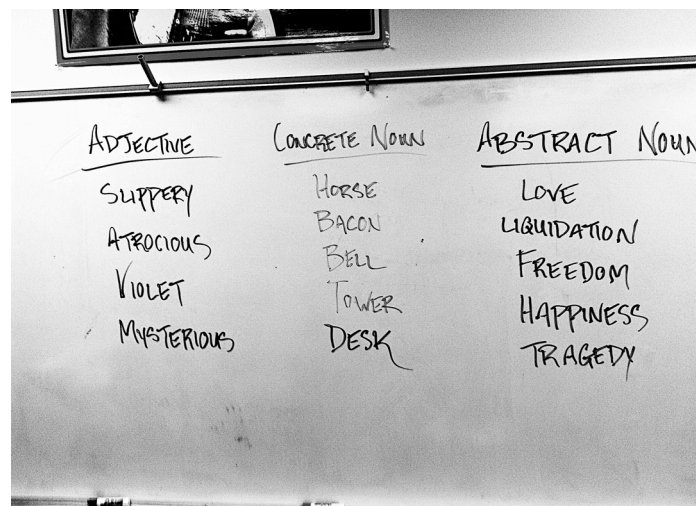 ADJECTIVE
SLIPPERY
ATROCIOUS
VIOLET
MYSTERIOUS
CONCRETE NOUN
HORSE
BACON
BELL
TOWER
DESK
ABSTRACT NOUN
LOVE
LIQUIDATION
FREEDOM
HAPPINESS
TRAGEDY